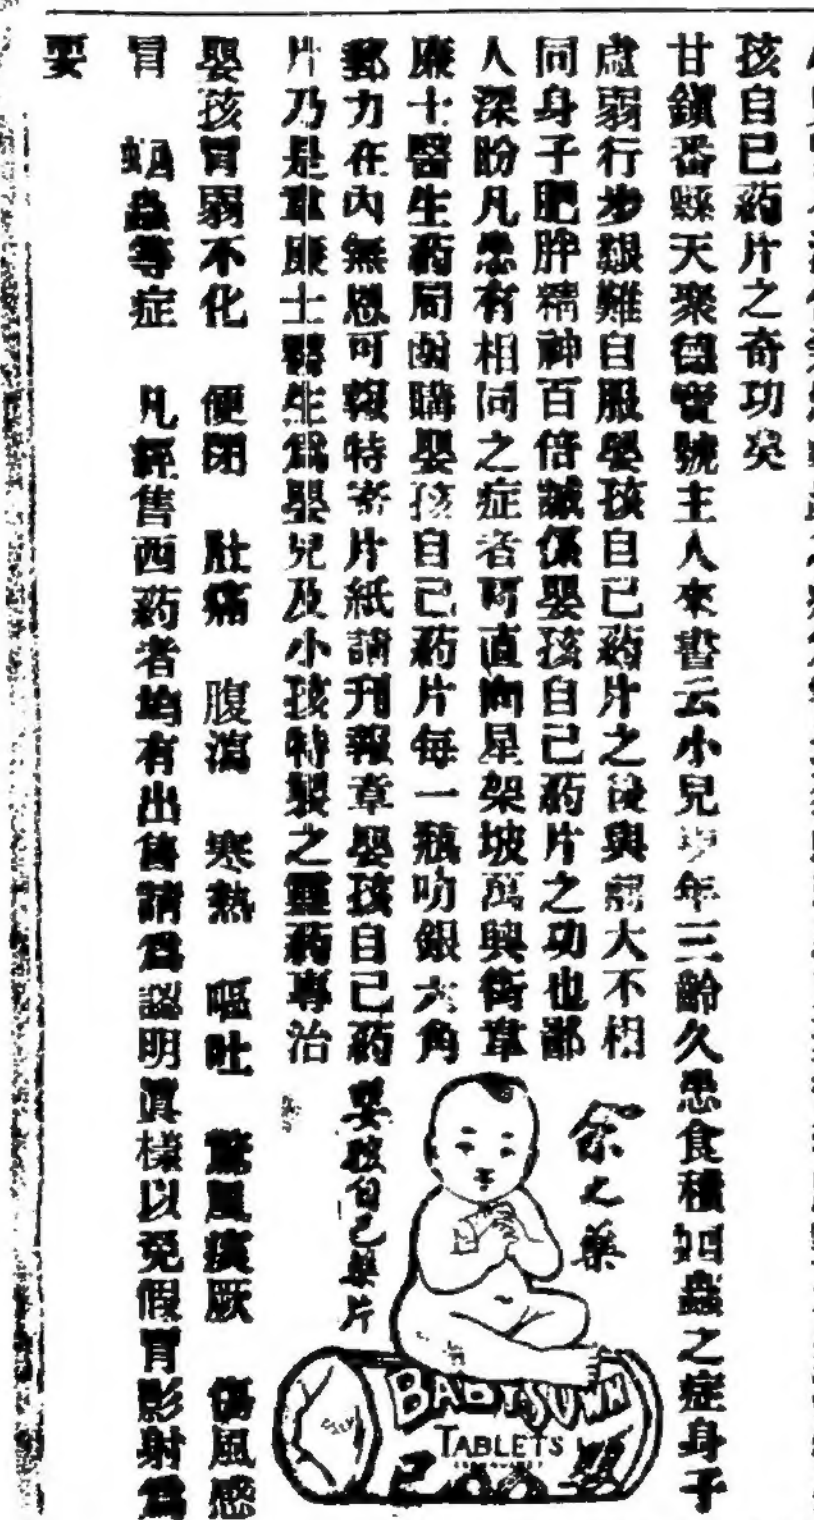 孩自已葯片之奇功矣
甘鎮番縣天聚德寶號主人來書云小兒年三齡久患食積蛔蟲之症身子
虛弱行步艱難自服嬰孩自已葯片之後與前大不相
同身子肥胖精神百倍誠係嬰孩自已葯片之功也鄙
人深盼凡患有相同之症者可直向星架坡萬興街韋
廉士醫生葯局函購嬰孩自已葯片每一瓶叻銀六角
郵力在內無恩可報特寄片紙請刊報章嬰孩自已葯
片乃是韋廉士醫生爲嬰兒及小孩特製之靈葯專治
嬰孩胃弱不化 便閉 肚痛 腹瀉 寒熱 嘔吐 驚風痰厥 傷風感
冒 蛔蟲等症 凡經售西葯者均有出售請爲認明眞樣以免假冒影射爲
要
余之藥
嬰孩自己藥片
BABY'S OWN
TABLETS
己